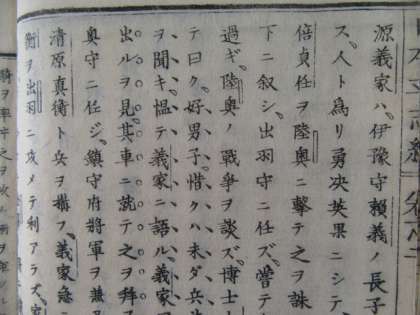 源義家ハ、伊豫守賴義ノ長子
ス、人ト爲リ勇决英果ニシテ
倍貞任ヲ陸奥ニ擊テ之ヲ誅
下ニ叙シ、出羽守ニ任ズ、嘗テ
過ギ、陸奥ノ戰爭ヲ談ズ、博士
テ曰ク、好男子惜クハ未ダ兵
ヲ聞キ、慍テ義家ニ語ル、義家
出ルヲ見、其車ニ就テ之ヲ拜
奥守ニ任ジ、鎮守府將軍ヲ兼
清原真衡ト兵ヲ構フ、義家急
衡ヲ出羽ニ攻メテ利アラズ、